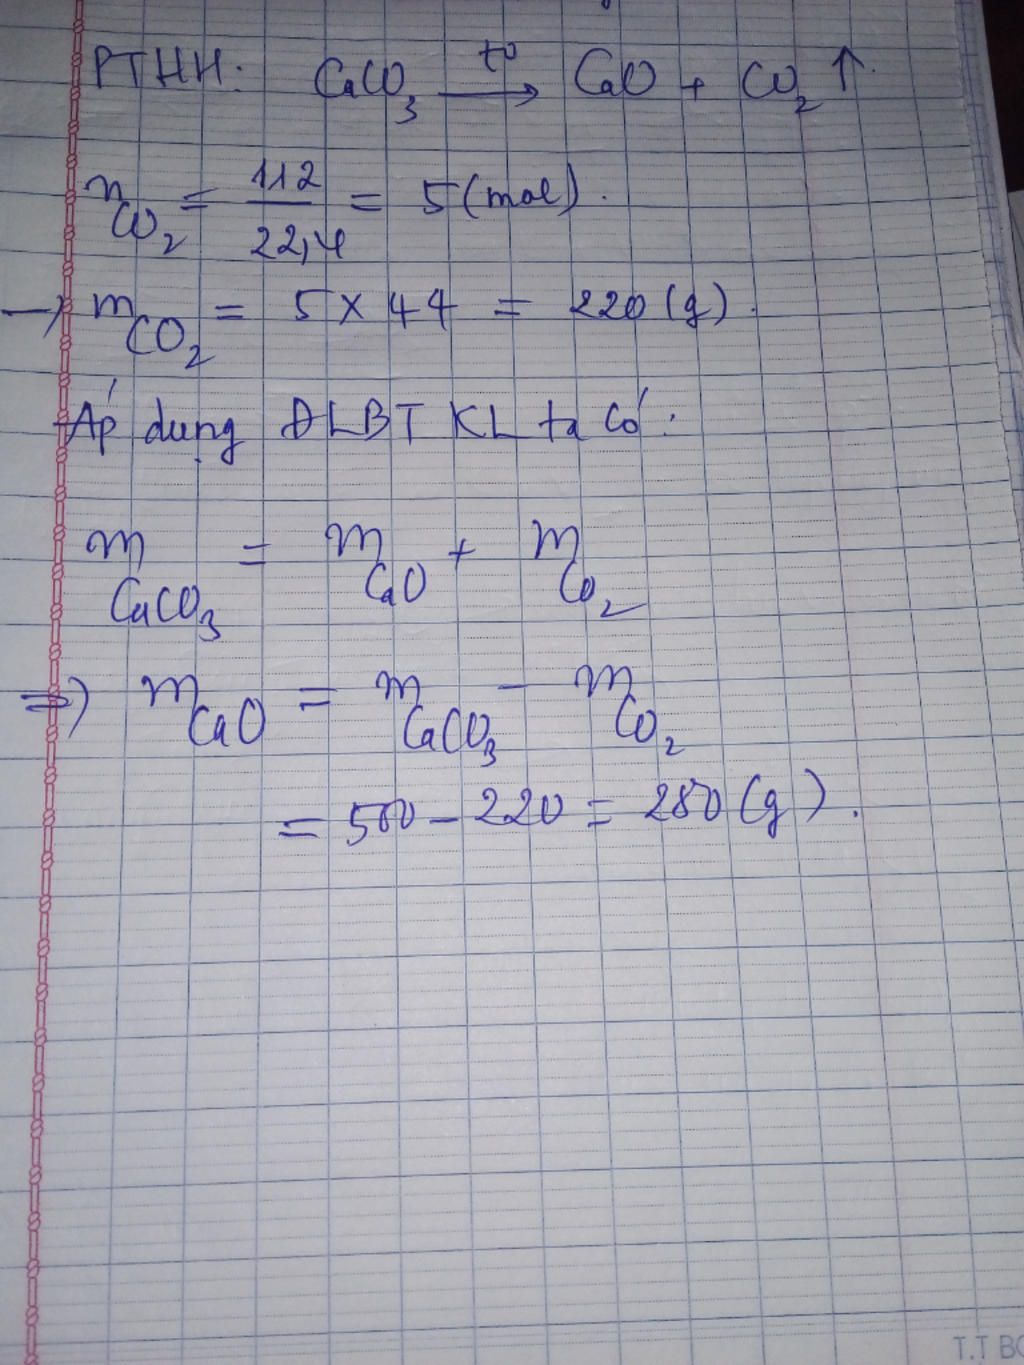 PTHH: CaCO₃ —t°→ CaO + CO₂ ↑.
n CO₂ = 112/22,4 = 5 (mol).
→ m CO₂ = 5 × 44 = 220 (g).
Áp dụng ĐLBTKL ta có:
m CaCO₃ = m CaO + m CO₂
⇒ m CaO = m CaCO₃ - m CO₂
= 500 - 220 = 280 (g).
T.T BO